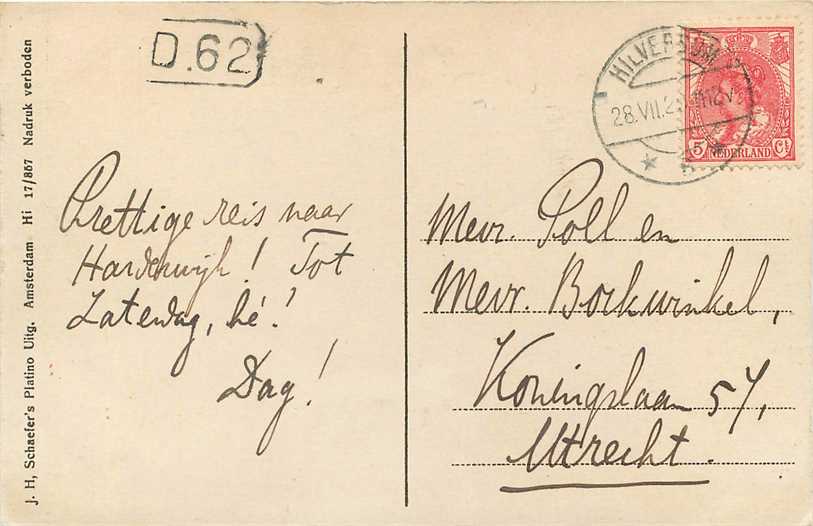 D.62
HILVERSUM
28.VII.2
12V
5 Ct
NEDERLAND
Prettige reis naar
Harderwijk! Tot
Zaterdag, hé!
Dag!
Mevr. Poll en
Mevr. Borkwinkel,
Koningslaan 57,
Utrecht.
J. H, Schaefer's Platino Uitg. Amsterdam Hi 17/867 Nadruk verboden